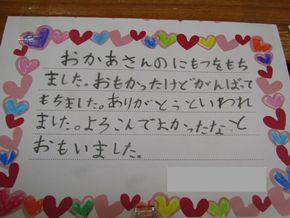 おかあさんのにもつをもち
ました。おもかったけどがんばって
もちました。ありがとうといわれ
ました。よろこんでよかったなっと
おもいました。